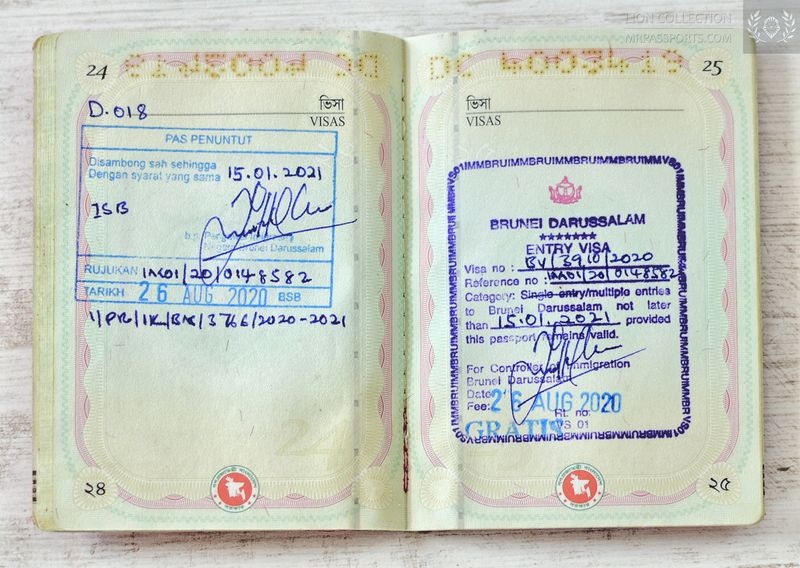 LION COLLECTION
MRPASSPORTS.COM
24
D.018
ভিসা
VISAS
PAS PENUNTUT
Disambong sah sehingga
Dengan syarat yang sama 15.01.2021
ISB
Negara Brunei Darussalam
RUJUKAN IM01/20/0148582
TARIKH 26 AUG 2020 BSB
1/PR/IK/BN/3766/2020-2021
২৪
25
ভিসা
VISAS
BRUNEI DARUSSALAM
*******
ENTRY VISA
Visa no : BV/3910/2020
Reference no : IM01/20/0148582
Category: Single entry/multiple entries
to Brunei Darussalam not later
than 15.01.2021 provided
this passport remains valid.
For Controller of Immigration
Brunei Darussalam
Date: 26 AUG 2020
Fee: Rt. no:
GRATIS VS 01
২৫